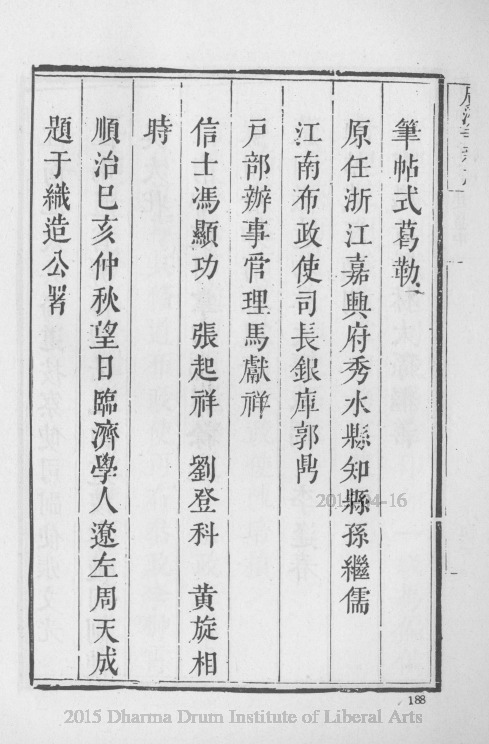 筆帖式葛勒
原任浙江嘉興府秀水縣知縣孫繼儒
江南布政使司長銀庫郭鼎
戶部辦事官理馬獻祥
信士馮顯功　張起祥　劉登科　黃旋相
時
順治己亥仲秋望日臨濟學人遼左周天成
題于織造公署
2015-04-16
188
2015 Dharma Drum Institute of Liberal Arts